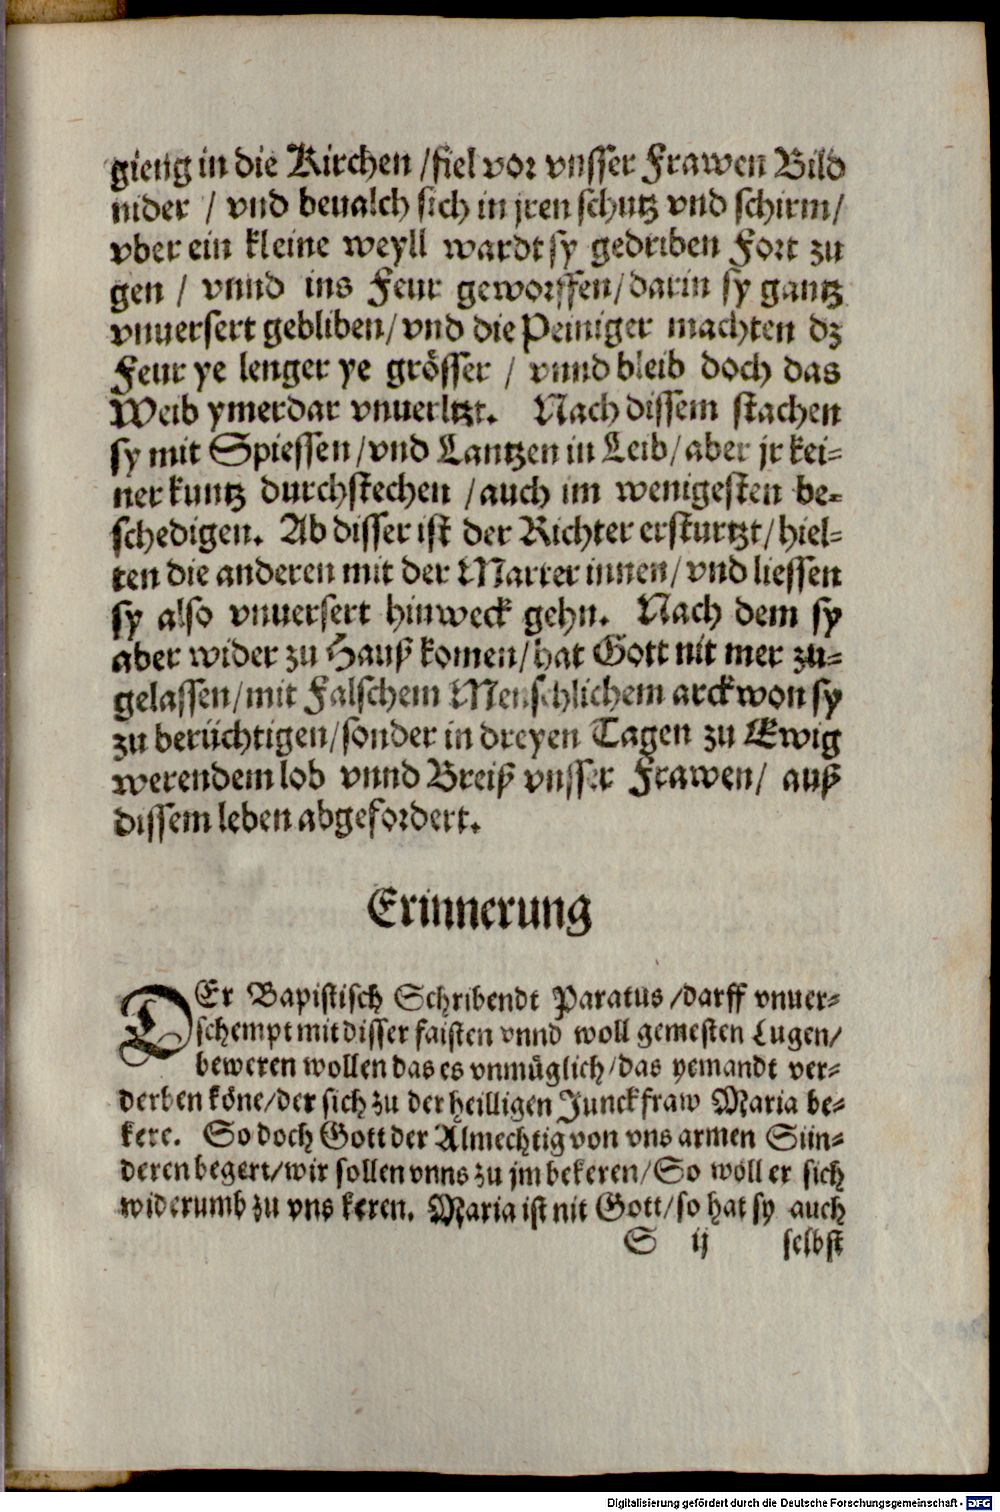 gieng in die Kirchen / fiel vor vnsser Frawen Bild
nider / vnd beualch sich in jren schutz vnd schirm/
vber ein kleine weyll wardt sy gedriben Fort zu
gen / vnnd ins Feur geworffen/darin sy gantz
vnuersert gebliben/vnd die Peiniger machten dz
Feur ye lenger ye grösser / vnnd bleib doch das
Weib ymerdar vnuerltzt. Nach dissem stachen
sy mit Spiessen/vnd Lantzen in Leib/aber jr kei=
ner kuntz durchstechen /auch im wenigesten be=
schedigen. Ab disser ist der Richter ersturtzt/hiel=
ten die anderen mit der Marter innen/vnd liessen
sy also vnuersert hinweck gehn. Nach dem sy
aber wider zu Hauß komen/hat Gott nit mer zu=
gelassen/mit Falschem Menschlichem arckwon sy
zu berüchtigen/sonder in dreyen Tagen zu Ewig
werendem lob vnnd Breiß vnsser Frawen/ auß
dissem leben abgefordert.
Erinnerung
DEr Bapistisch Schribendt Paratus /darff vnuer=
schempt mit disser faisten vnnd woll gemesten Lugen/
beweren wollen das es vnmüglich/das yemandt ver=
derben köne/der sich zu der heilligen Junckfraw Maria be=
kere. So doch Gott der Almechtig von vns armen Sün=
deren begert/wir sollen vnns zu jm bekeren/So wöll er sich
widerumb zu vns keren. Maria ist nit Gott/so hat sy auch
S ij selbst
Digitalisierung gefördert durch die Deutsche Forschungsgemeinschaft - DFG